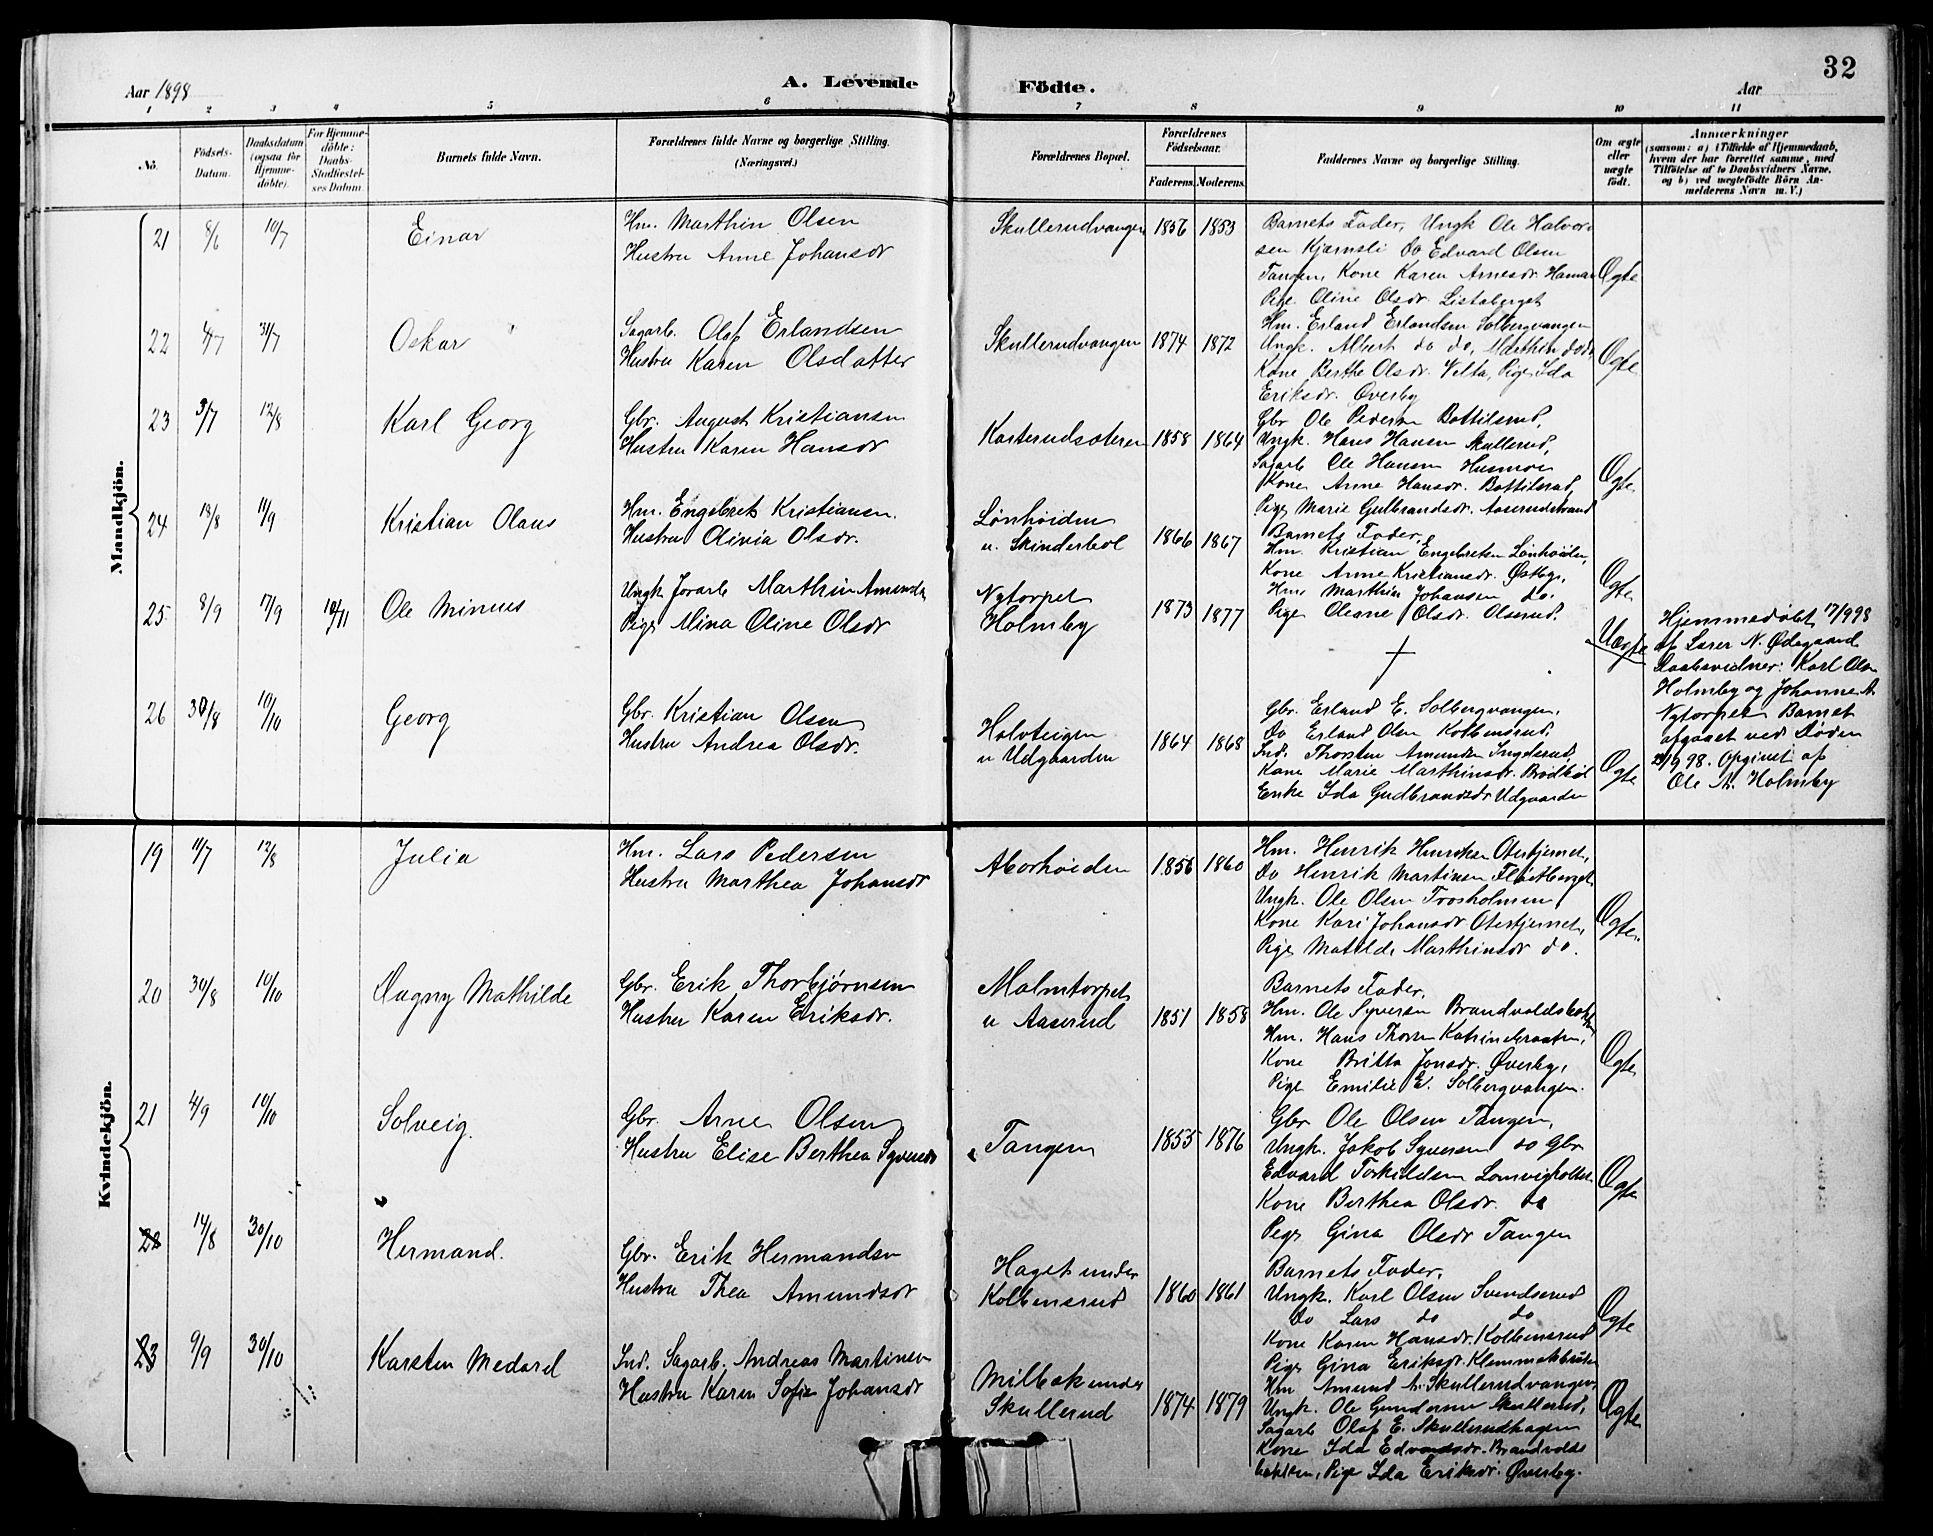 32
Aar 1898
A. Levende
Födte.
Aar
1 2 3 4 5 6 7 8 9 10 11
No.
Födsels-
Datum.
Daabsdatum
(ogsaa for
Hjemme-
döbte).
For Hjemme-
döbte:
Daabs-
Stadfæstel-
ses Datum.
Barnets fulde Navn.
Forældrenes fulde Navne og borgerlige Stilling.
(Næringsvei.)
Forældrenes Bopæl.
Forældrenes
Födselsaar.
Faderens. Moderens.
Faddernes Navne og borgerlige Stilling.
Om ægte
eller
uægte
födt.
Anmærkninger
(saasom: a) i Tilfælde af Hjemmedaab,
hvem der har forrettet samme, med
Tilföielse af to Daabsvidners Navne,
og b) ved uægtefödte Börn An-
melderens Navn m. V.)
Mandkjön.
21 8/6 10/7 Einar
Hm. Marthin Olsen
Hustru Anne Johansdr
Skullerudvangen 1856 1853
Barnets Fader, Ungk Ole Halvor
sen Kjærnsli Do Edvard Olsen
Tangen, Kone Karen Arnesdr.
Pige Oline Olsdr. Listaberget
Ægte
22 4/7 31/7 Oskar
Sagarb. Olaf Erlandsen
Hustru Karen Olsdatter
Skullerudvangen 1874 1872
Hm. Erland Erlandsen Solbergvangen
Ungk. Albert do do, Marthin do do,
Kone Berthe Olsdr. Velta, Pige Ida
Eriksdr. Øverby
Ægte
23 3/7 12/8 Karl Georg
Gbr. August Kristiansen
Hustru Karen Hansdr
Kasterudsæteren 1858 1864
Gbr Ole Pedersen Bottilsrud,
Ungk. Hans Hansen Skullerud,
Sagarb Ole Hansen Husmoen
Kone Anne Hansdr. Bottilsrud,
Pige Marie Gulbrandsdr. Aaserudstrand
Ægte
24 13/8 11/9 Kristian Olaus
Hm. Engebret Kristiansen.
Hustru Olivia Olsdr.
Lønhøiden
u. Skinderbøl 1866 1867
Barnets Fader,
Hm. Kristian Engebretsen Lønhøiden,
Kone Anne Kristiansdr. Østby,
Hm Marthin Johansen do.
Pige Oleane Olsdr. Olserud.
Ægte
25 8/9 17/9 Ole Minius
Ungk Jorarb Marthin Amundsen
Pige Mina Oline Olsdr
Nytorpet
Holmby 1873 1877
†
Uægte
Hjemmedøbt 17/9 98
af Lærer N. Ødegaard
Daabsvidner: Karl Olsen
Holmby og Johanne A.
Nytorpet. Barnet
afgaaet ved Døden
Opgivet af
Ole A. Holmby
26 30/8 10/10 Georg
Gbr. Kristian Olsen
Hustru Andrea Olsdr.
Holvteigen
u Udgaarden 1864 1868
Gbr. Erland E. Solbergvangen,
Do Erland Olsen Kolbensrud,
Ind. Thorsten Amundsen Ingelsrud,
Kone Marie Marthinsdr. Brødbøl
Enke Ida Gudbrandsdr Udgaarden
Ægte
Kvindekjön.
19 11/7 12/8 Julia
Hm. Lars Pedersen
Hustru Marthea Johansdr
Aborhøiden 1856 1860
Hm. Henrik Henriksen Otertjernet,
Do Henrik Martinsen Fløitberget
Ungk. Ole Olsen Trosholmen,
Kone Kari Johansdr Otertjernet,
Pige Matilde Marthinsdr do.
Ægte.
20 30/8 10/10 Dagny Mathilde
Gbr. Erik Thorbjørnsen
Hustru Karen Eriksdr.
Malmtorpet
u Aaserud 1851 1858
Barnets Fader,
Hm. Ole Syversen
Hm. Hans Thoresen
Kone Britta Jonsdr. Øverby,
Pige Emilie E. Solbergvangen.
Ægte
21 4/9 10/10 Solveig.
Gbr. Arne Olsen
Hustru Elise Berthea Syversdr
Tangen 1855 1876
Gbr Ole Olsen Tangen,
Ungk. Jakob Syversen do Gbr
Edvard Torkildsen
Kone Berthea Olsdr. do
Pige Gina Olsdr Tangen
Ægte
22 14/8 30/10 Hermand.
Gbr. Erik Hermandsen
Hustru Thea Amundsdr
Haget under
Kolbensrud 1860 1861
Barnets Fader,
Ungk. Karl Olsen Svendserud
Do Lars do do
Kone Karen Hansdr. Kolbensrud
Pige Gina Eriksdr.
Ægte
23 9/9 30/10 Karsten Medard
Ind. Sagarb. Andreas Martinsen
Hustru Karen Sofie Johansdr
Milbak under
Skullerud 1874 1879
Hm Amund A. Skullerudvangen
Ungk. Ole Gundersen Skullerud,
Sagarb Olaf E. Skullerudhagen
Kone Ida Edvardsdr. Brandvolds
bakken, Pige Ida Eriksdr. Øverby.
Ægte